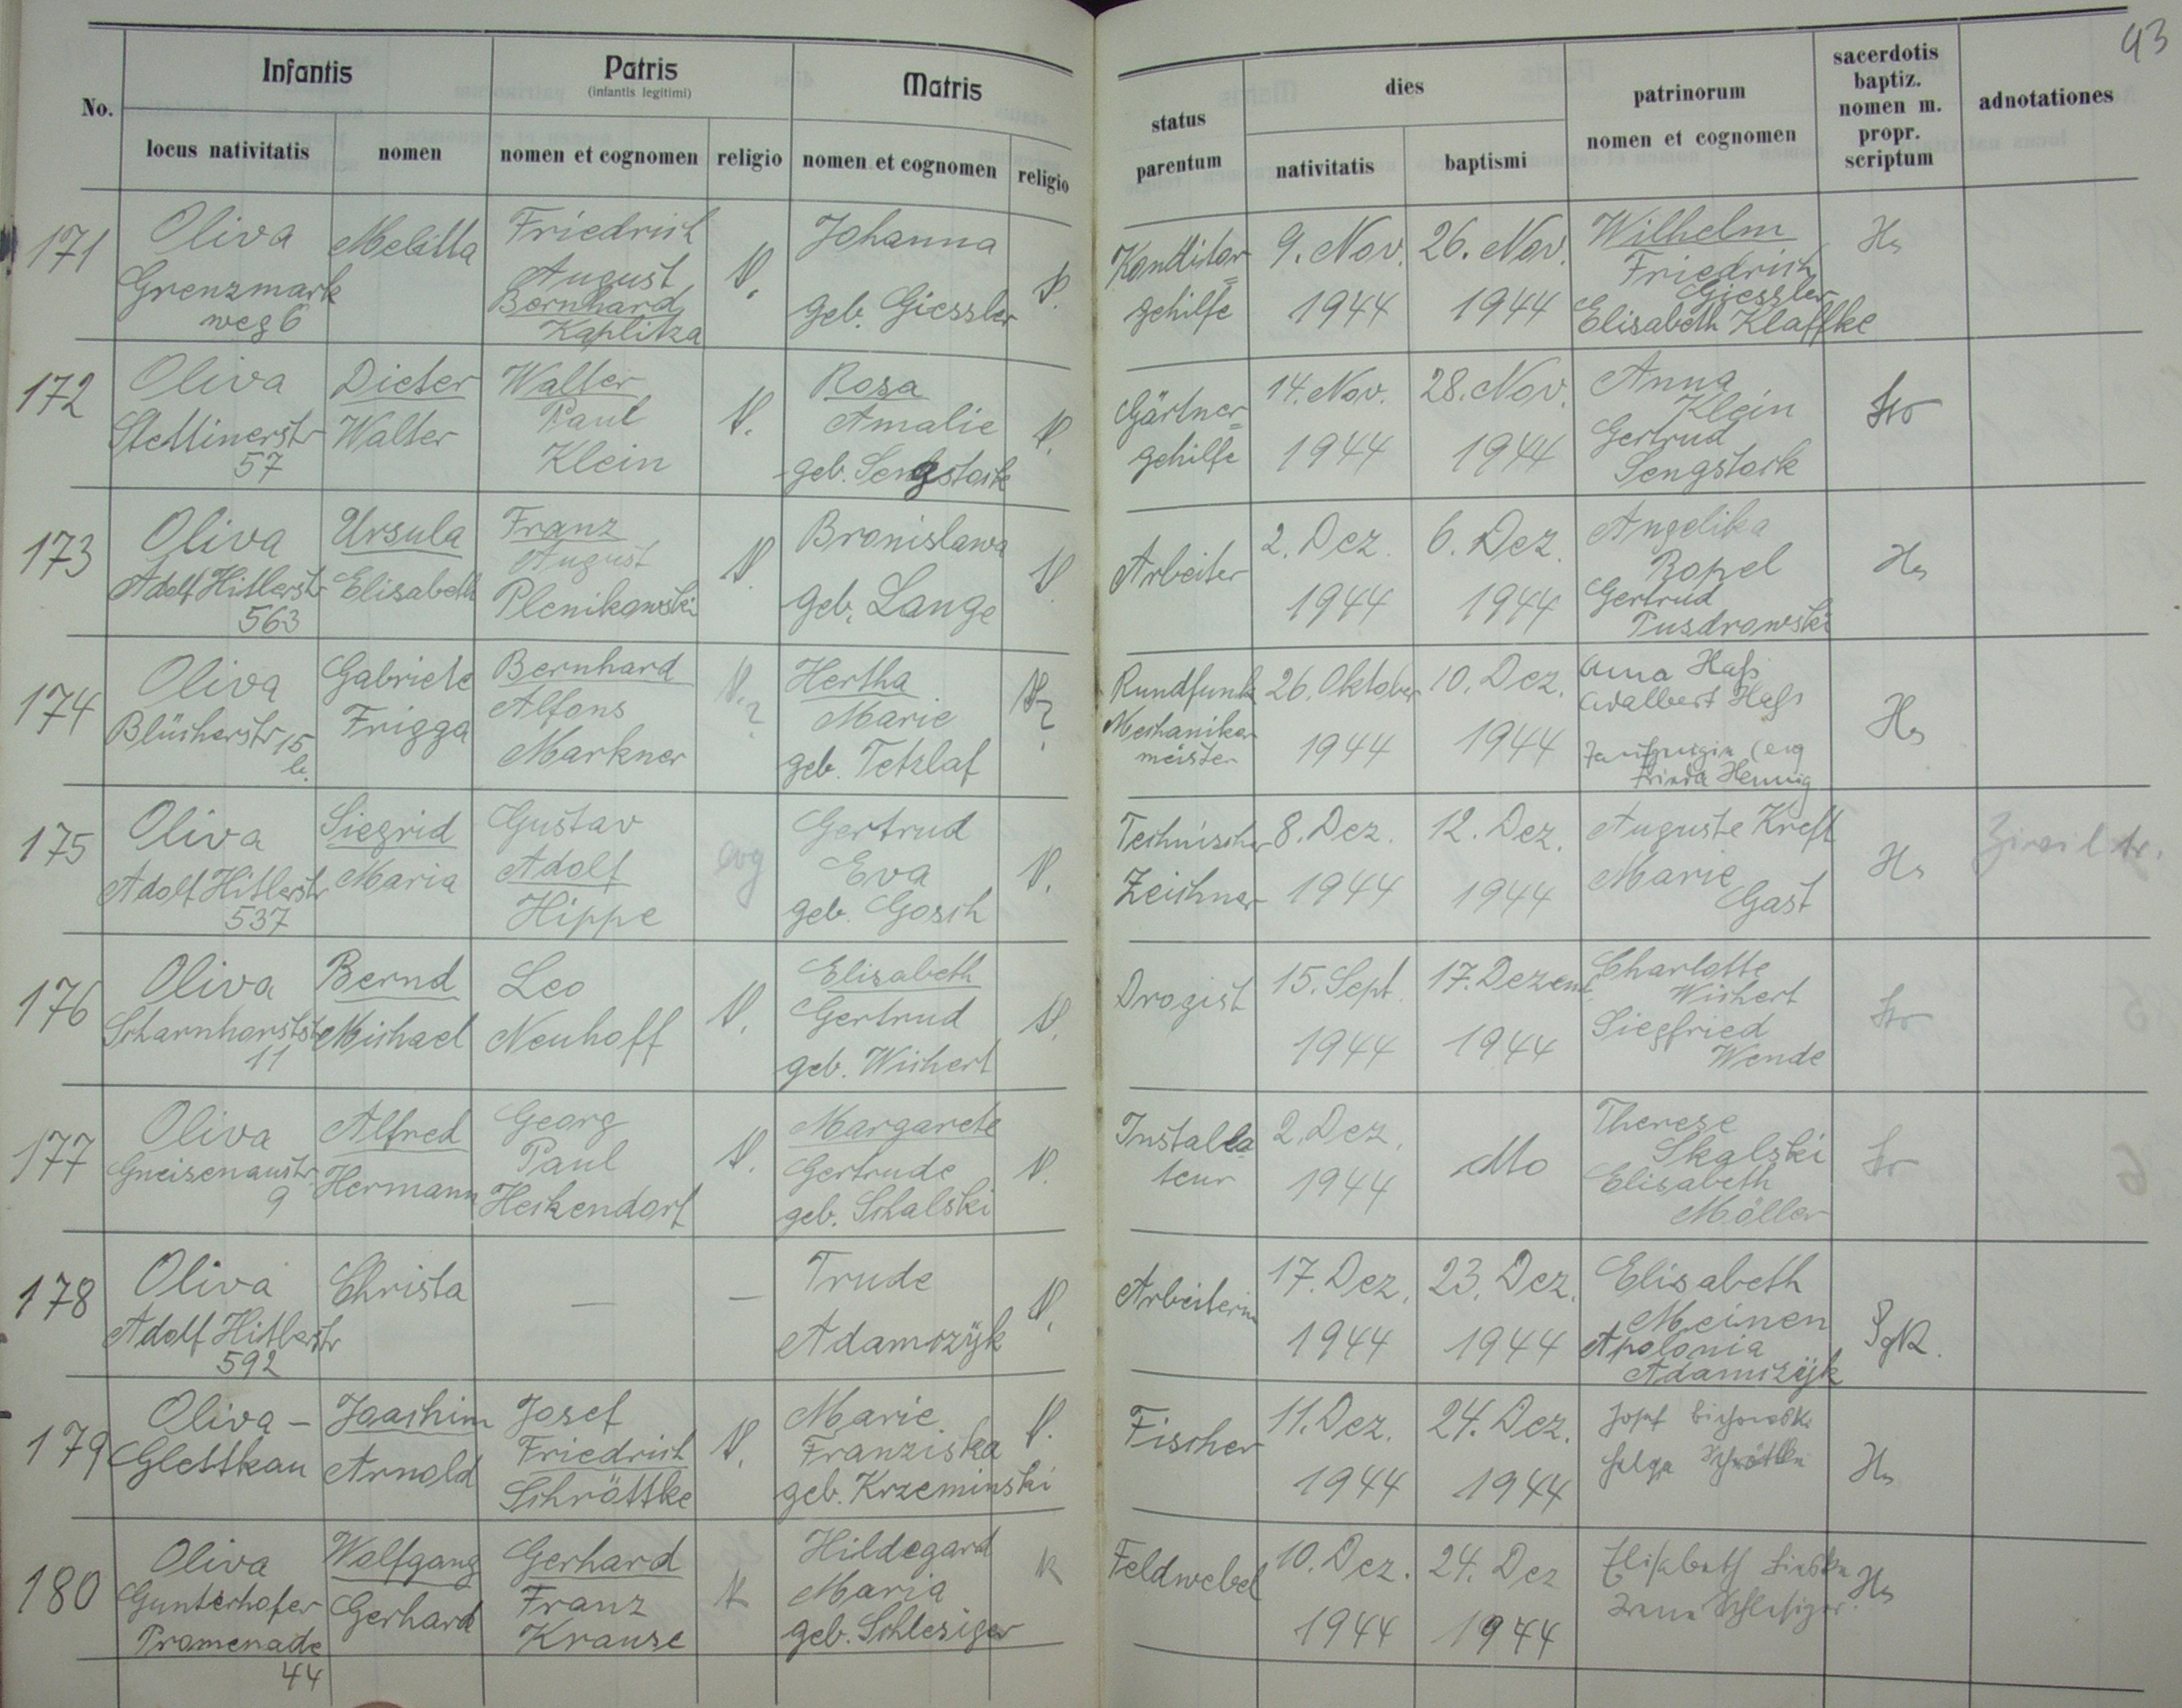 43
Infantis
Patris
(infantis legitimi)
Matris
No.
locus nativitatis
nomen
nomen et cognomen
religio
nomen et cognomen
religio
status
parentum
dies
nativitatis
baptismi
patrinorum
nomen et cognomen
sacerdotis
baptiz.
nomen m.
propr.
scriptum
adnotationes
171
Oliva
Grenzmark
weg 6
Melitta
Friedrich
August
Bernhard
Kaplitza
Johanna
geb. Giessler
Konditor=
gehilfe
9. Nov.
1944
26. Nov.
1944
Wilhelm
Friedrich
Giessler
Elisabeth Klaffke
172
Oliva
Stettinerstr
57
Dieter
Walter
Walter
Paul
Klein
Rosa
Amalie
geb. Sengstock
Gärtner=
gehilfe
14. Nov.
1944
28. Nov.
1944
Anna
Klein
Gertrud
Sengstock
173
Oliva
Adolf Hitlerstr
563
Ursula
Elisabeth
Franz
August
Plenikowski
Bronislawa
geb. Lange
Arbeiter
2. Dez.
1944
6. Dez.
1944
Angelika
Ropel
Gertrud
Pusdrowski
174
Oliva
Blücherstr 15
Gabriele
Frigga
Bernhard
Alfons
Markner
Hertha
Marie
geb. Tetzlaf
Rundfunk
Mechaniker
meister
26. Oktober
1944
10. Dez.
1944
Haß
Adalbert Haß
Frieda Hennig
175
Oliva
Adolf Hitlerstr
537
Siegrid
Maria
Gustav
Adolf
Hippe
evg
Gertrud
Eva
geb. Gosch
Technischer
Zeichner
8. Dez.
1944
12. Dez.
1944
Auguste Kreft
Marie
Gast
Ziviltr.
176
Oliva
Scharnhorststr
11
Bernd
Michael
Leo
Neuhoff
Elisabeth
Gertrud
geb. Wichert
Drogist
15. Sept.
1944
17. Dezem
1944
Charlotte
Wichert
Siegfried
Wende
177
Oliva
Gneisenaustr
9
Alfred
Hermann
Georg
Paul
Heikendorf
Margarete
Gertrude
geb. Schalski
Installa
teur
2. Dez.
1944
dto
Therese
Skalski
Elisabeth
Möller
178
Oliva
Adolf Hitlerstr
592
Christa
—
—
Trude
Adamczyk
Arbeiterin
17. Dez.
1944
23. Dez.
1944
Elisabeth
Meinen
Apolonia
Adamszyk
179
Oliva -
Glettkau
Joachim
Arnold
Josef
Friedrich
Schröttke
Marie
Franziska
geb. Krzeminski
Fischer
11. Dez.
1944
24. Dez.
1944
Josef
Helga Schröttke
180
Oliva
Gunterhofer
Promenade
44
Wolfgang
Gerhard
Gerhard
Franz
Krause
k
Hildegard
Maria
geb. Schlesiger
k
Feldwebel
10. Dez.
1944
24. Dez
1944
Elisabeth
Schlesiger